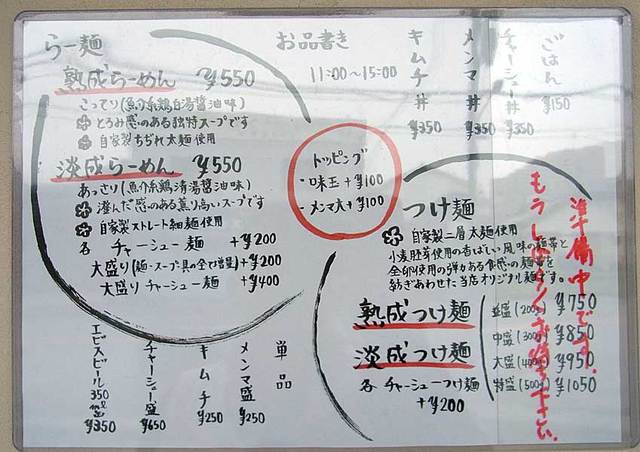 お品書き
11:00〜15:00
らー麺
熟成らーめん ¥550
こってり(魚介系鶏白湯醤油味)
とろみ感のある独特スープです
自家製ちぢれ太麺使用
淡成らーめん ¥550
あっさり(魚介系鶏清湯醤油味)
澄んだ感のある薫り高いスープです
自家製ストレート細麺使用
各 チャーシュー麺 +¥200
大盛り(麺・スープ・具の全て増量) +¥200
大盛りチャーシュー麺 +¥400
トッピング
・味玉+¥100
・メンマ大+¥100
ごはん ¥150
チャーシュー丼 ¥350
メンマ丼 ¥350
キムチ丼 ¥350
つけ麺
自家製二層太麺使用
小麦胚芽使用の香ばしい風味の麺帯と
全卵使用の弾力ある食感の麺帯を
紡ぎあわせた当店オリジナル麺です。
熟成つけ麺
淡成つけ麺
並盛(200g) ¥750
中盛(300g) ¥850
大盛(400g) ¥950
特盛(500g) ¥1050
各 チャーシューつけ麺
+¥200
準備中です。
もうしばらくお待ち下さい。
単品
メンマ盛 ¥250
キムチ ¥250
チャーシュー盛 ¥650
ヱビスビール 350ml缶 ¥350